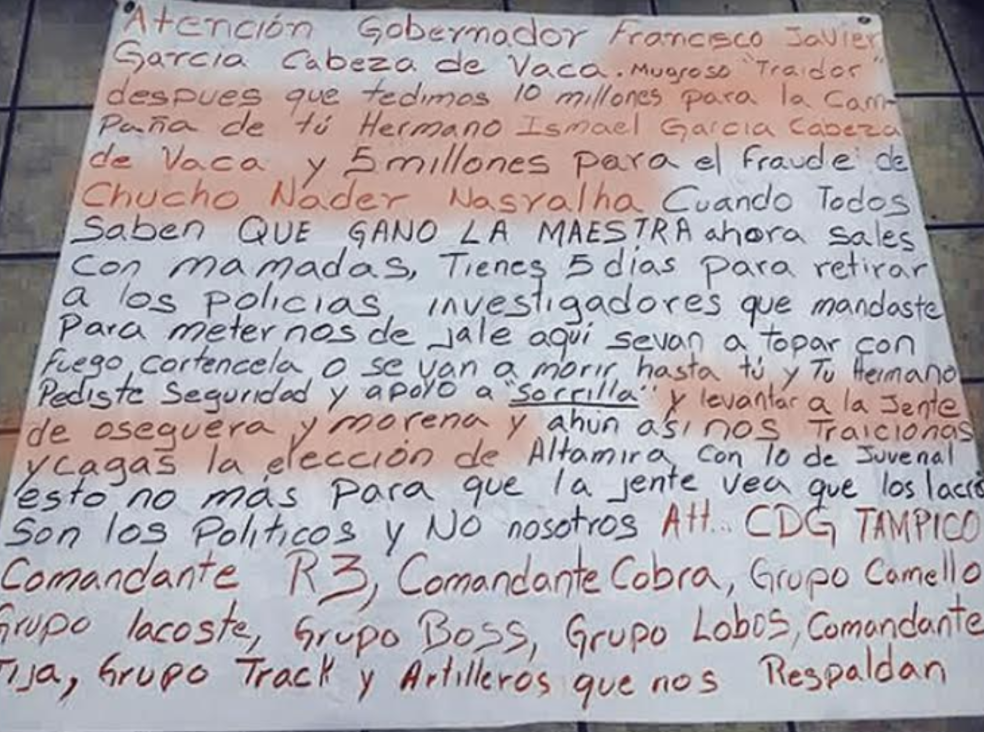 Atención Gobernador Francisco Javier
Garcia Cabeza de Vaca. Mugroso "Traidor"
despues que tedimos 10 millones para la Cam-
Paña de tú Hermano Ismael Garcia Cabeza
de Vaca y 5 millones para el fraude de
Chucho Nader Nasralha Cuando Todos
Saben QUE GANO LA MAESTRA ahora sales
con mamadas, Tienes 5 dias para retirar
a los policias, investigadores que mandaste
Para meternos de jale aquí sevan a topar con
fuego, cortencela o se van a morir hasta tú y Tu Hermano
Pediste Seguridad y apoyo a "Sorrilla" y levantar a la Jente
de oseguera y morena y ahun asi nos Traicionas
y cagas la elección de Altamira con lo de Juvenal
esto no más para que la jente vea que los lacr
Son los Politicos y NO nosotros Att.. CDG TAMPICO
Comandante R3, Comandante Cobra, Grupo Camello
Grupo lacoste, Grupo BOSS, Grupo Lobos, Comandante
Tija, Grupo Track y Artilleros que nos Respaldan